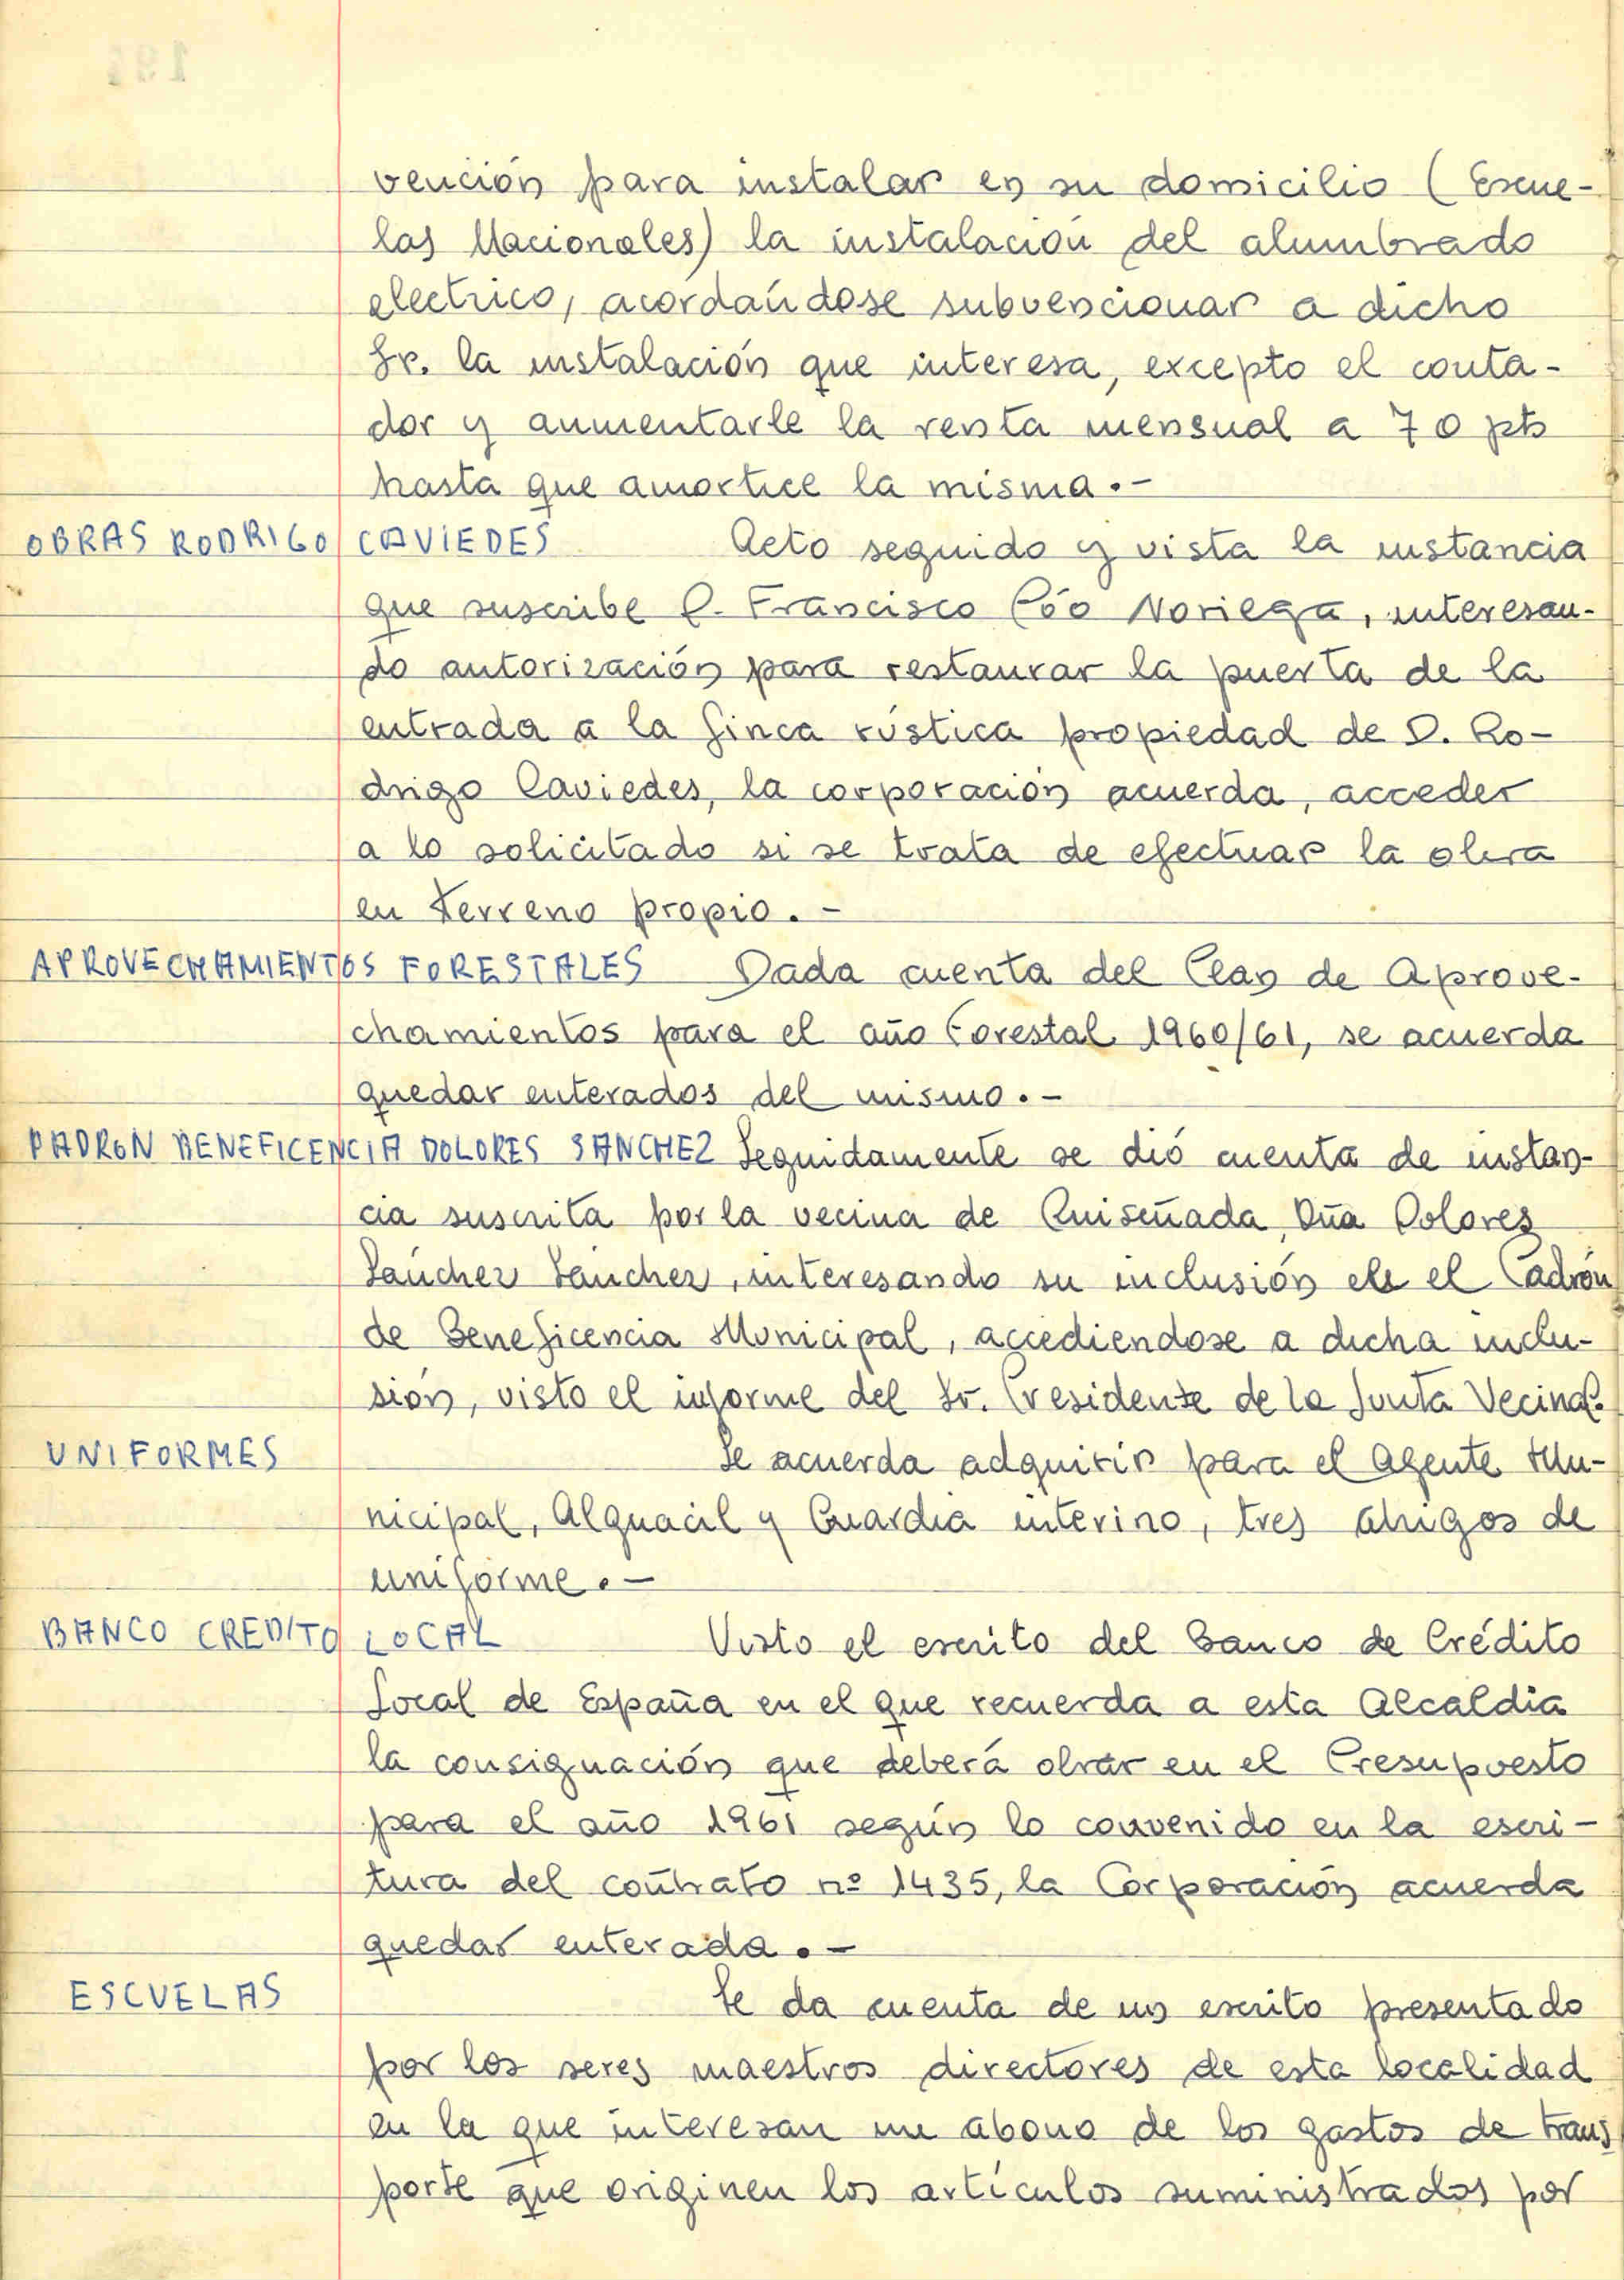 vención para instalar en su domicilio (Escue-
las Nacionales) la instalación del alumbrado
electrico, acordándose subvencionar a dicho
Sr. la instalación que interesa, excepto el conta-
dor y aumentarle la renta mensual a 70 pts
hasta que amortice la misma.-
OBRAS RODRIGO CAVIEDES Acto seguido y vista la instancia
que suscribe D. Francisco Póo Noriega, interesan-
do autorización para restaurar la puerta de la
entrada a la finca rústica propiedad de D. Ro-
drigo Caviedes, la corporación acuerda, acceder
a lo solicitado si se trata de efectuar la obra
en terreno propio.-
APROVECHAMIENTOS FORESTALES Dada cuenta del Plan de Aprove-
chamientos para el año Forestal 1960/61, se acuerda
quedar enterados del mismo.-
PADRON BENEFICENCIA DOLORES SANCHEZ Seguidamente se dió cuenta de instan-
cia suscrita por la vecina de Ruiseñada, Dña Dolores
Sánchez Sánchez, interesando su inclusión en el Padrón
de Beneficencia Municipal, accediendose a dicha inclu-
sión, visto el informe del Sr. Presidente de la Junta Vecinal.
UNIFORMES Se acuerda adquirir para el Agente Mu-
nicipal, Alguacil y Guardia interino, tres abrigos de
uniforme.-
BANCO CREDITO LOCAL Visto el escrito del Banco de Crédito
Local de España en el que recuerda a esta Alcaldia
la consignación que deberá obrar en el Presupuesto
para el año 1961 según lo convenido en la escri-
tura del contrato nº 1435, la Corporación acuerda
quedar enterada.-
ESCUELAS Se da cuenta de un escrito presentado
por los seres maestros directores de esta localidad
en la que interesan un abono de los gastos de trans
porte que originen los artículos suministrados por